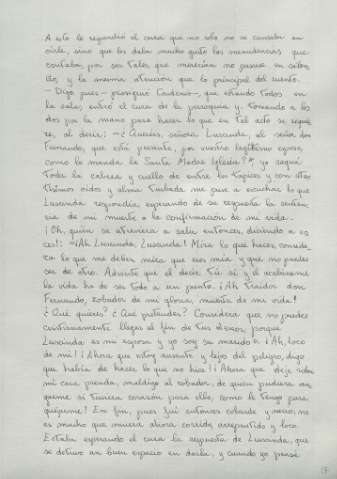 A esto le respondió el cura que no solo no se cansaban en
oirle, sino que les daba mucho gusto las menudencias que
contaba, por ser tales, que merecían no pasarse en silen
cio, y la misma atención que lo principal del cuento.
- Digo pues - prosiguió Cardenio -, que estando todos en
la sala, entró el cura de la parroquia y, tomando a los
dos por la mano para hacer lo que en tal acto se requie
re, al decir: - "¿Queréis, señora Luscinda, al señor don
Fernando, que está presente, por vuestro legítimo esposo,
como lo manda la Santa Madre Iglesia?", yo saqué
toda la cabeza y cuello de entre los tapices y con aten
tísimos oídos y alma turbada me puse a escuchar lo que
Luscinda respondía, esperando de su respuesta la senten
cia de mi muerte o la confirmación de mi vida.
¡Oh, quién se atreviera a salir entonces, diciendo a vo
ces!: - ¡Ah Luscinda, Luscinda! Mira lo que haces, conside
ra lo que me debes, mira que eres mía y que no puedes
ser de otro. Advierte que el decir tú sí y el acabárseme
la vida ha de ser todo a un punto. ¡Ah traidor don
Fernando, robador de mi gloria, muerte de mi vida!
¿Qué quieres? ¿Qué pretendes? Considera que no puedes
cristianamente llegar al fin de tus deseos, porque
Luscinda es mi esposa y yo soy su marido". ¡Ah, loco
de mí! ¡Ahora que estoy ausente y lejos del peligro, digo
que había de hacer lo que no hice! ¡Ahora que dejé robar
mi cara prenda, maldigo al robador, de quien pudiera ven
garme si tuviera corazón para ello, como lo tengo para
quejarme! En fin, pues fui entonces cobarde y necio, no
es mucho que muera ahora corrido, arrepentido y loco.
Estaba esperando el cura la respuesta de Luscinda, que
se detuvo un buen espacio en darla, y cuando yo pensé